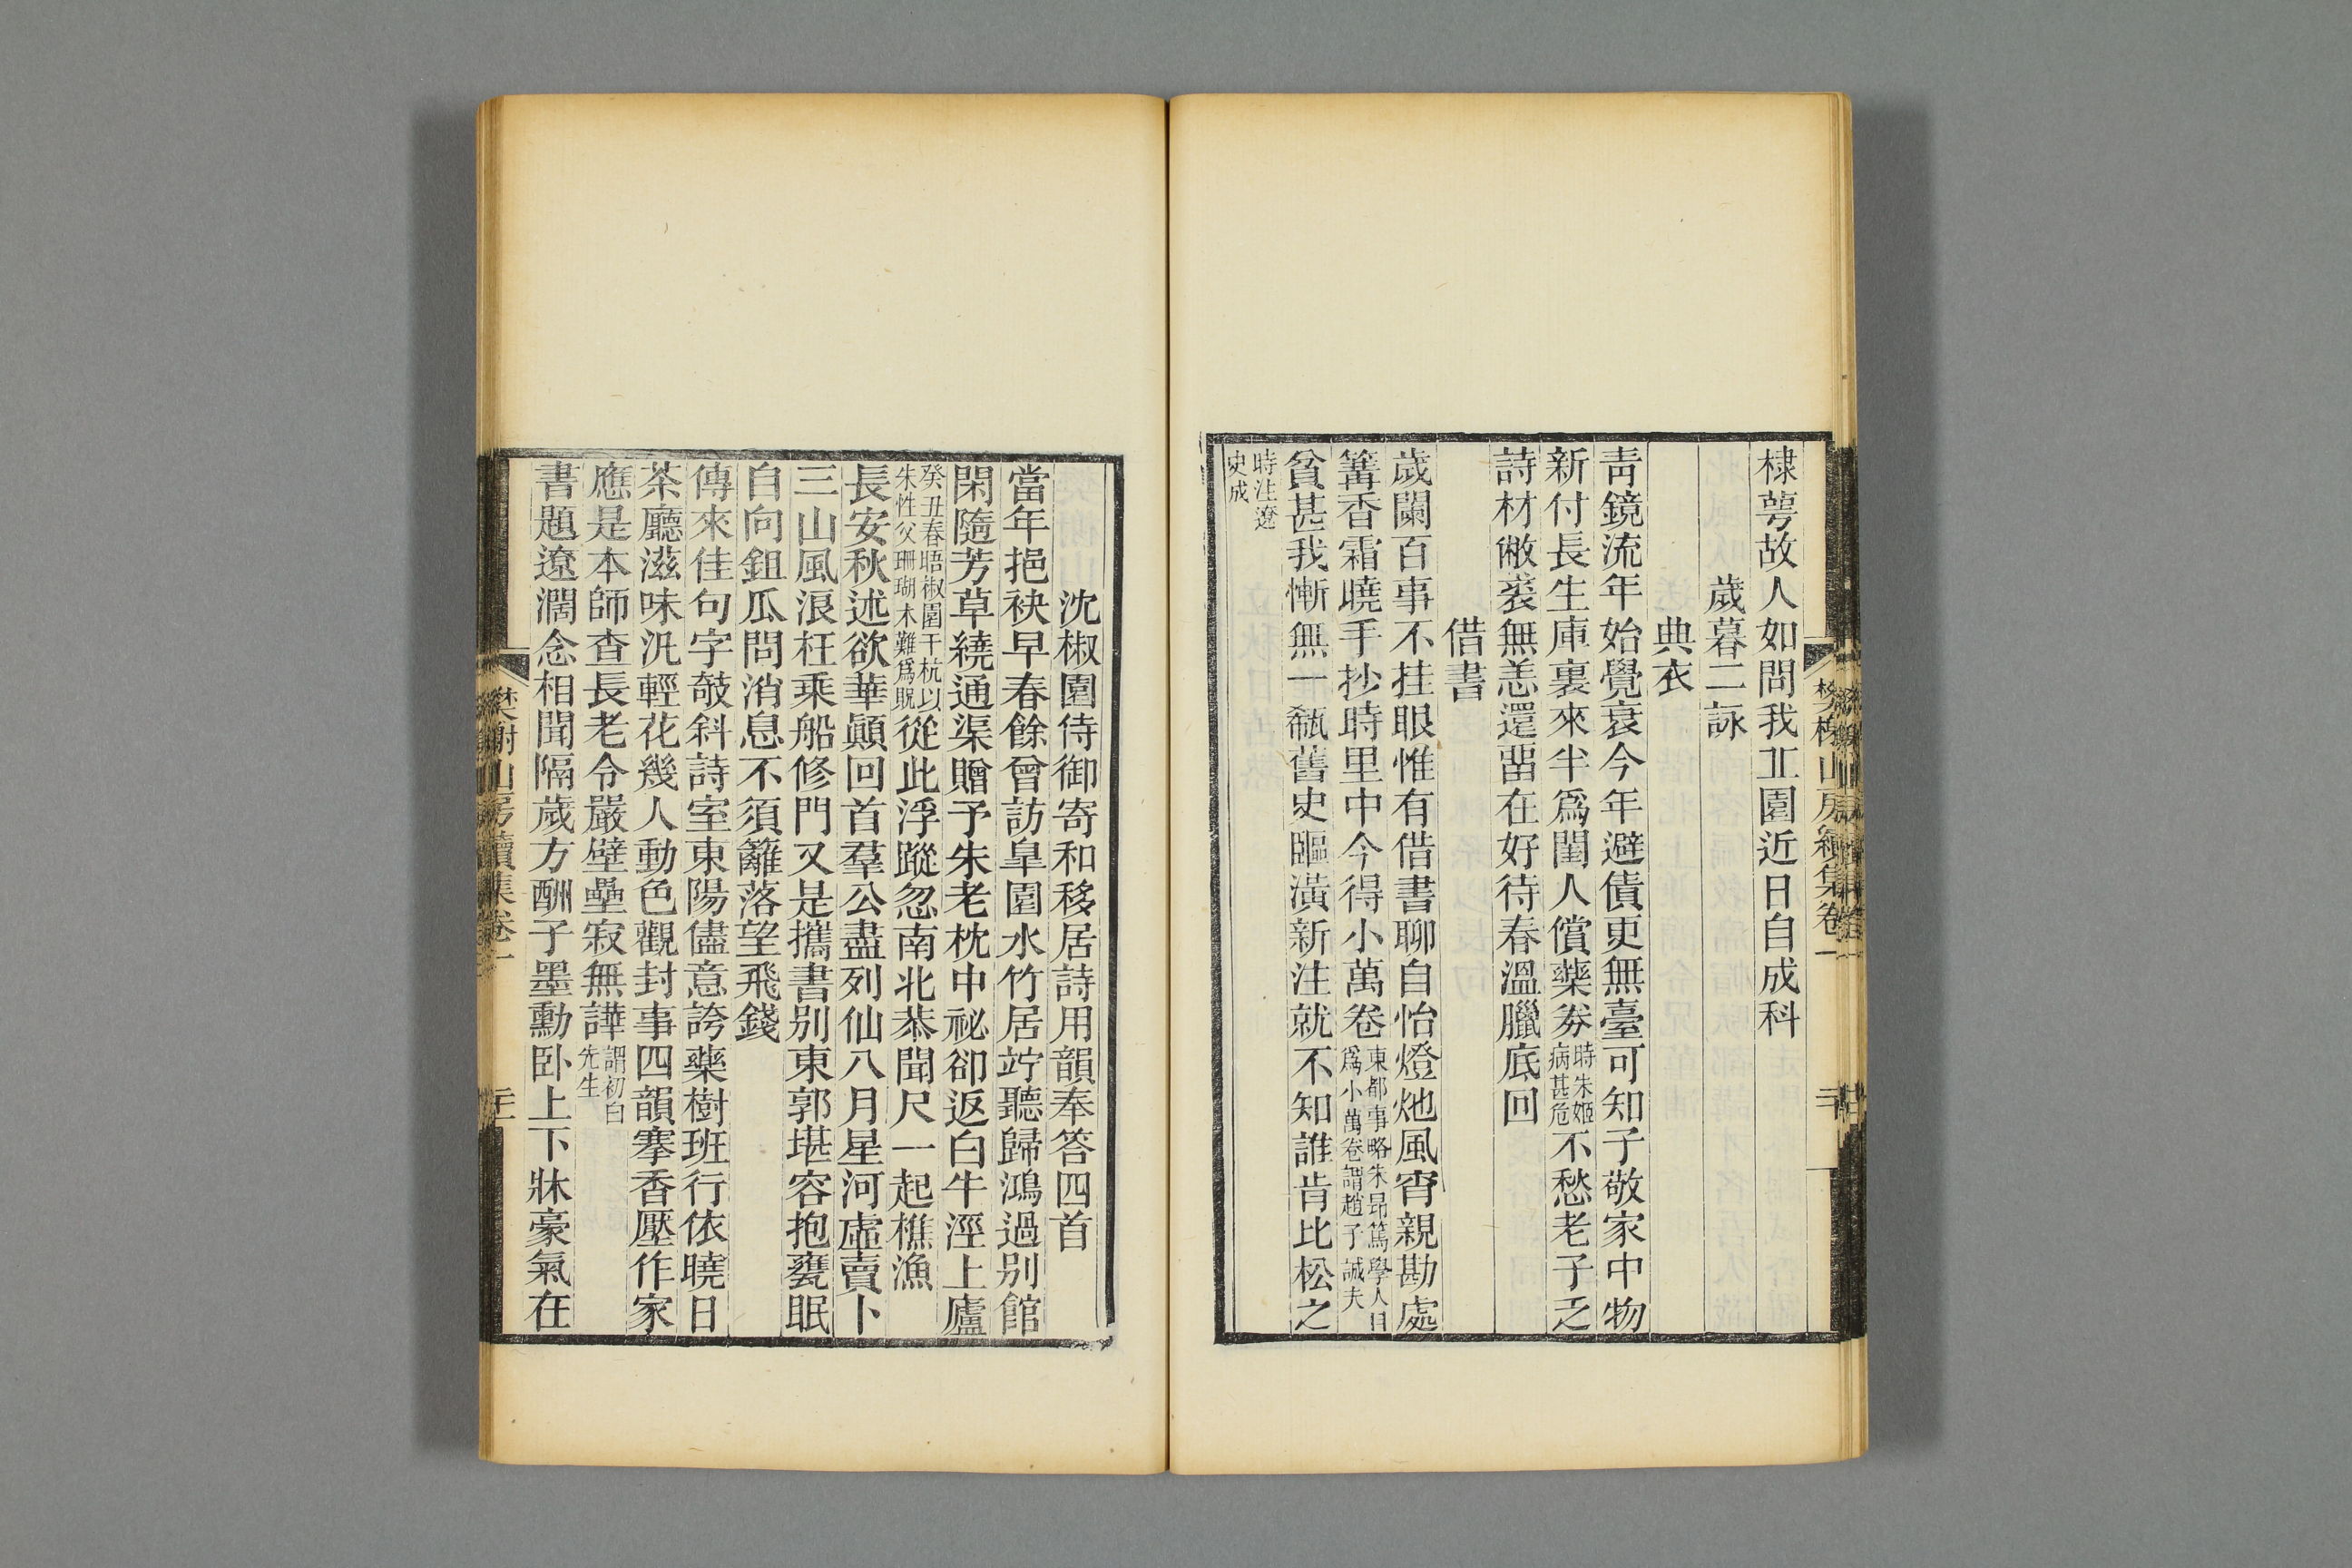 棣萼故人如問我丠園近日自成科
歲暮二詠
典衣
青鏡流年始覺衰今年避債更無臺可知子敬家中物
新付長生庫裏來半爲閨人償藥券時朱姬病甚危不愁老子乏
詩材敝裘無恙還畱在好待春溫臘底回
借書
歲闌百事不挂眼惟有借書聊自怡燈灺風宵親勘處
篝香霜曉手抄時里中今得小萬卷東都事略朱昂篤學人目爲小萬卷謂趙子誠夫
貧甚我慚無一瓻舊史臨潢新注就不知誰肯比松之
時注遼史成
樊榭山房續集卷一
二十
沈椒園侍御寄和移居詩用韻奉答四首
當年挹袂早春餘曾訪皐園水竹居竚聽歸鴻過別館
閑隨芳草繞通渠贈予朱老枕中祕卻返白牛涇上廬
癸丑春晤椒園于杭以朱性父珊瑚木難爲贶從此浮蹤忽南北恭聞尺一起樵漁
長安秋述欲華顚回首羣公盡列仙八月星河虛賣卜
三山風浪枉乘船修門又是攜書別東郭堪容抱甕眠
自向鉏瓜問消息不須籬落望飛錢
傳來佳句字攲斜詩室東陽儘意誇藥樹班行依曉日
茶廳滋味汎輕花幾人動色觀封事四韻搴香壓作家
應是本師查長老令嚴壁壘寂無譁謂初白先生
書題遼濶念相聞隔歲方酬子墨勳卧上下牀豪氣在
樊榭山房續集卷一
二十一